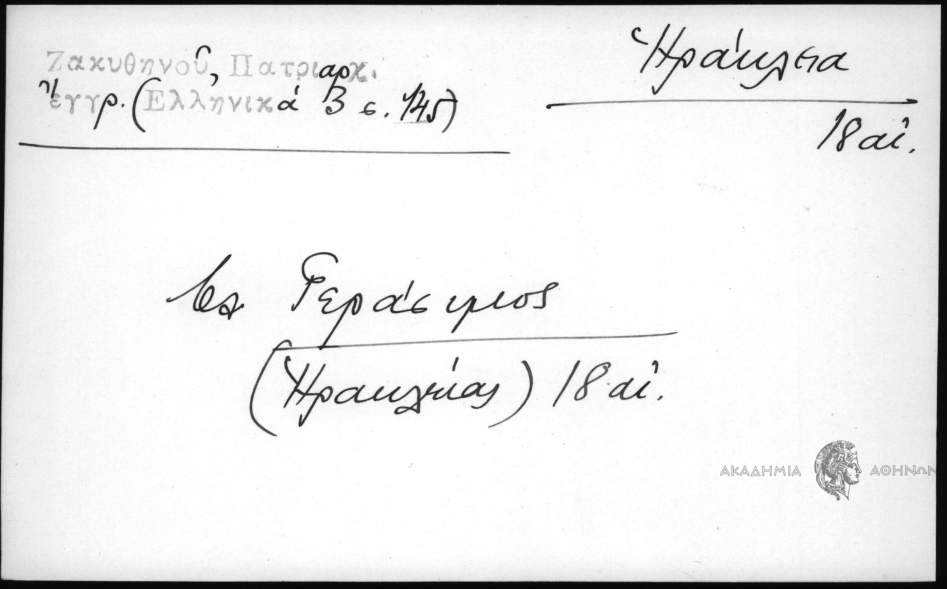 Ζακυθηνοῦ, Πατριαρχ.
ἔγγρ. (Ἑλληνικά 3 σ. 145)
Ἡράκλεια
18 αἰ.
βλ Γεράσιμος
(Ἡρακλείας) 18 αἰ.
ΑΚΑΔΗΜΙΑ ΑΘΗΝΩΝ